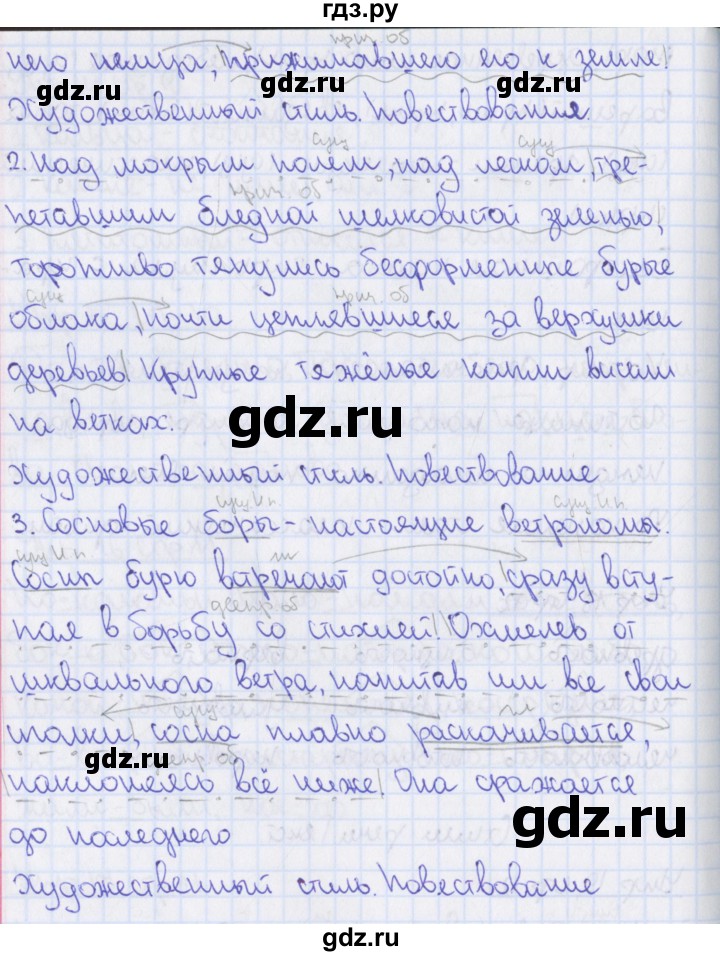 гдз.ру
прич. об
него немца, прижимавшего его к земле!
gdz.ru
gdz.ru
Художественный стиль. Повествования
сущ
сущ
2. Над мокрым полем, над леском, тре-
прич. об
петавшим бледной шелковистой зеленью,
торопливо тянулись бесформенные бурые
сущ
прич. об
облака, почти цеплявшиеся за верхушки
деревьев. Крупные тяжёлые капли висели
на ветках.
gdz.ru
Художественный стиль. Повествование
сущ И п
сущ И п
3. Сосновые боры - настоящие ветроломы.
сущ И п
гл
Сосны бурю встречают достойно, сразу всту-
деепр об
пая в борьбу со стихией! Охмелев от
шквального ветра, напитав им все свои
сущ
гл
иголки, сосна плавно раскачивается,
gdz.ru
деепр об
наклоняясь всё ниже! Она сражается
gdz.ru
до последнего
Художественный стиль. Повествование
gdz.ru